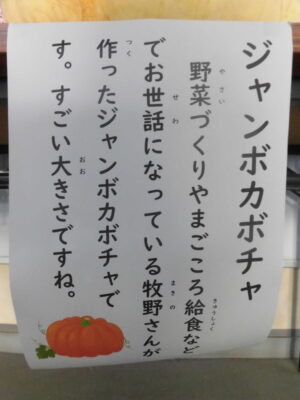 ジャンボカボチャ
野菜づくりやまごころ給食など
やさい
きゅうしょく
でお世話になっている牧野さんが
せわ
まきの
作ったジャンボカボチャで
つく
す。すごい大きさですね。
おお